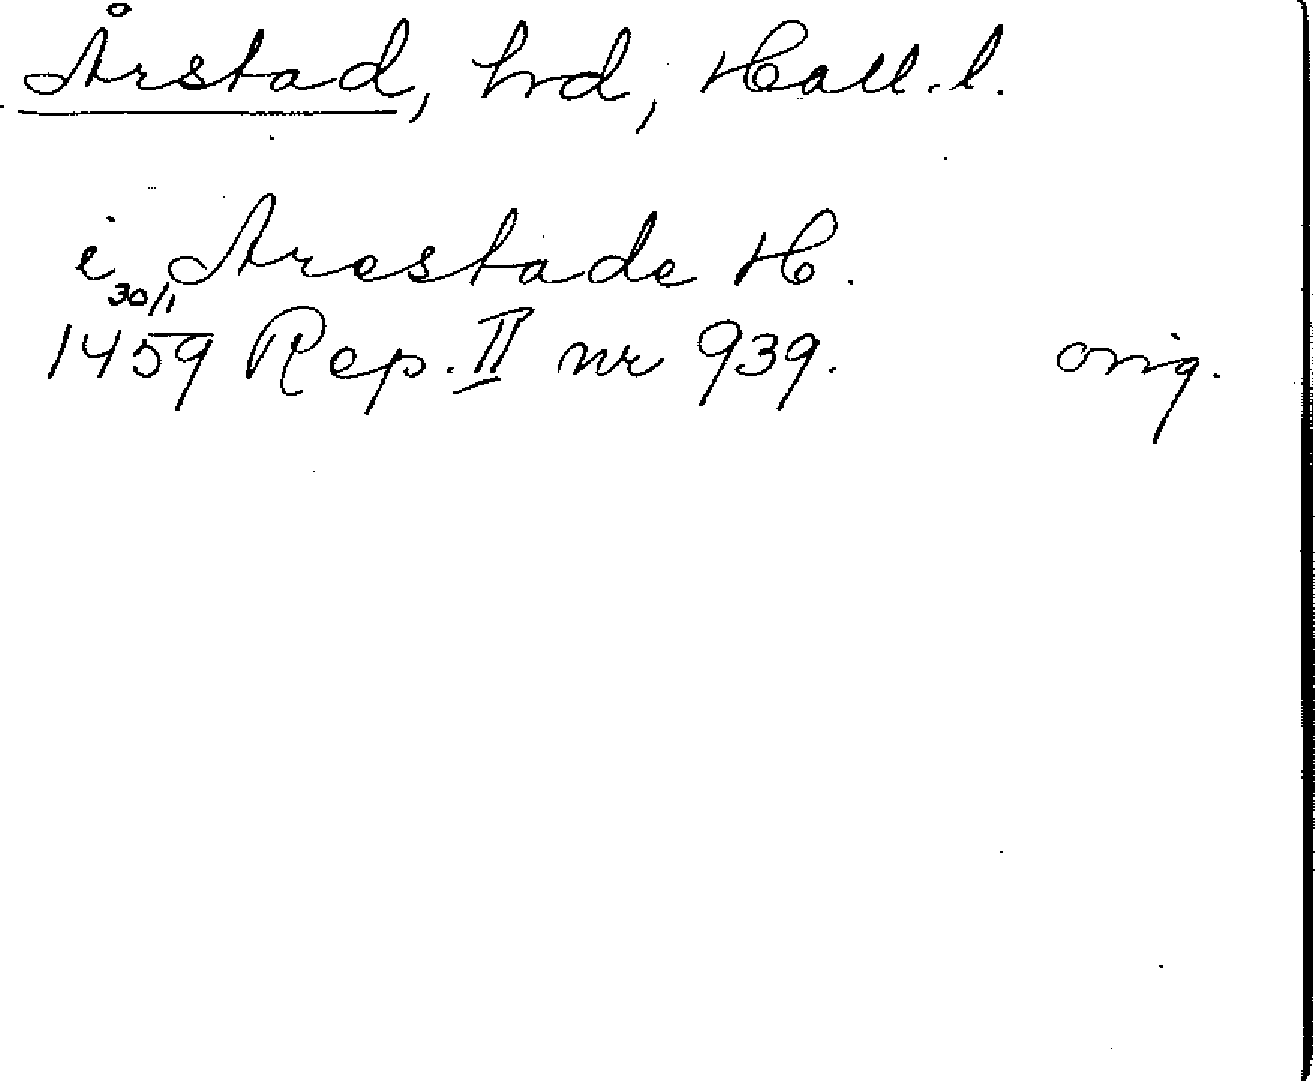 Årstad, hrd, Hall.l.
i Arestade H.
30/1
1459 Rep. II nr 939. orig.